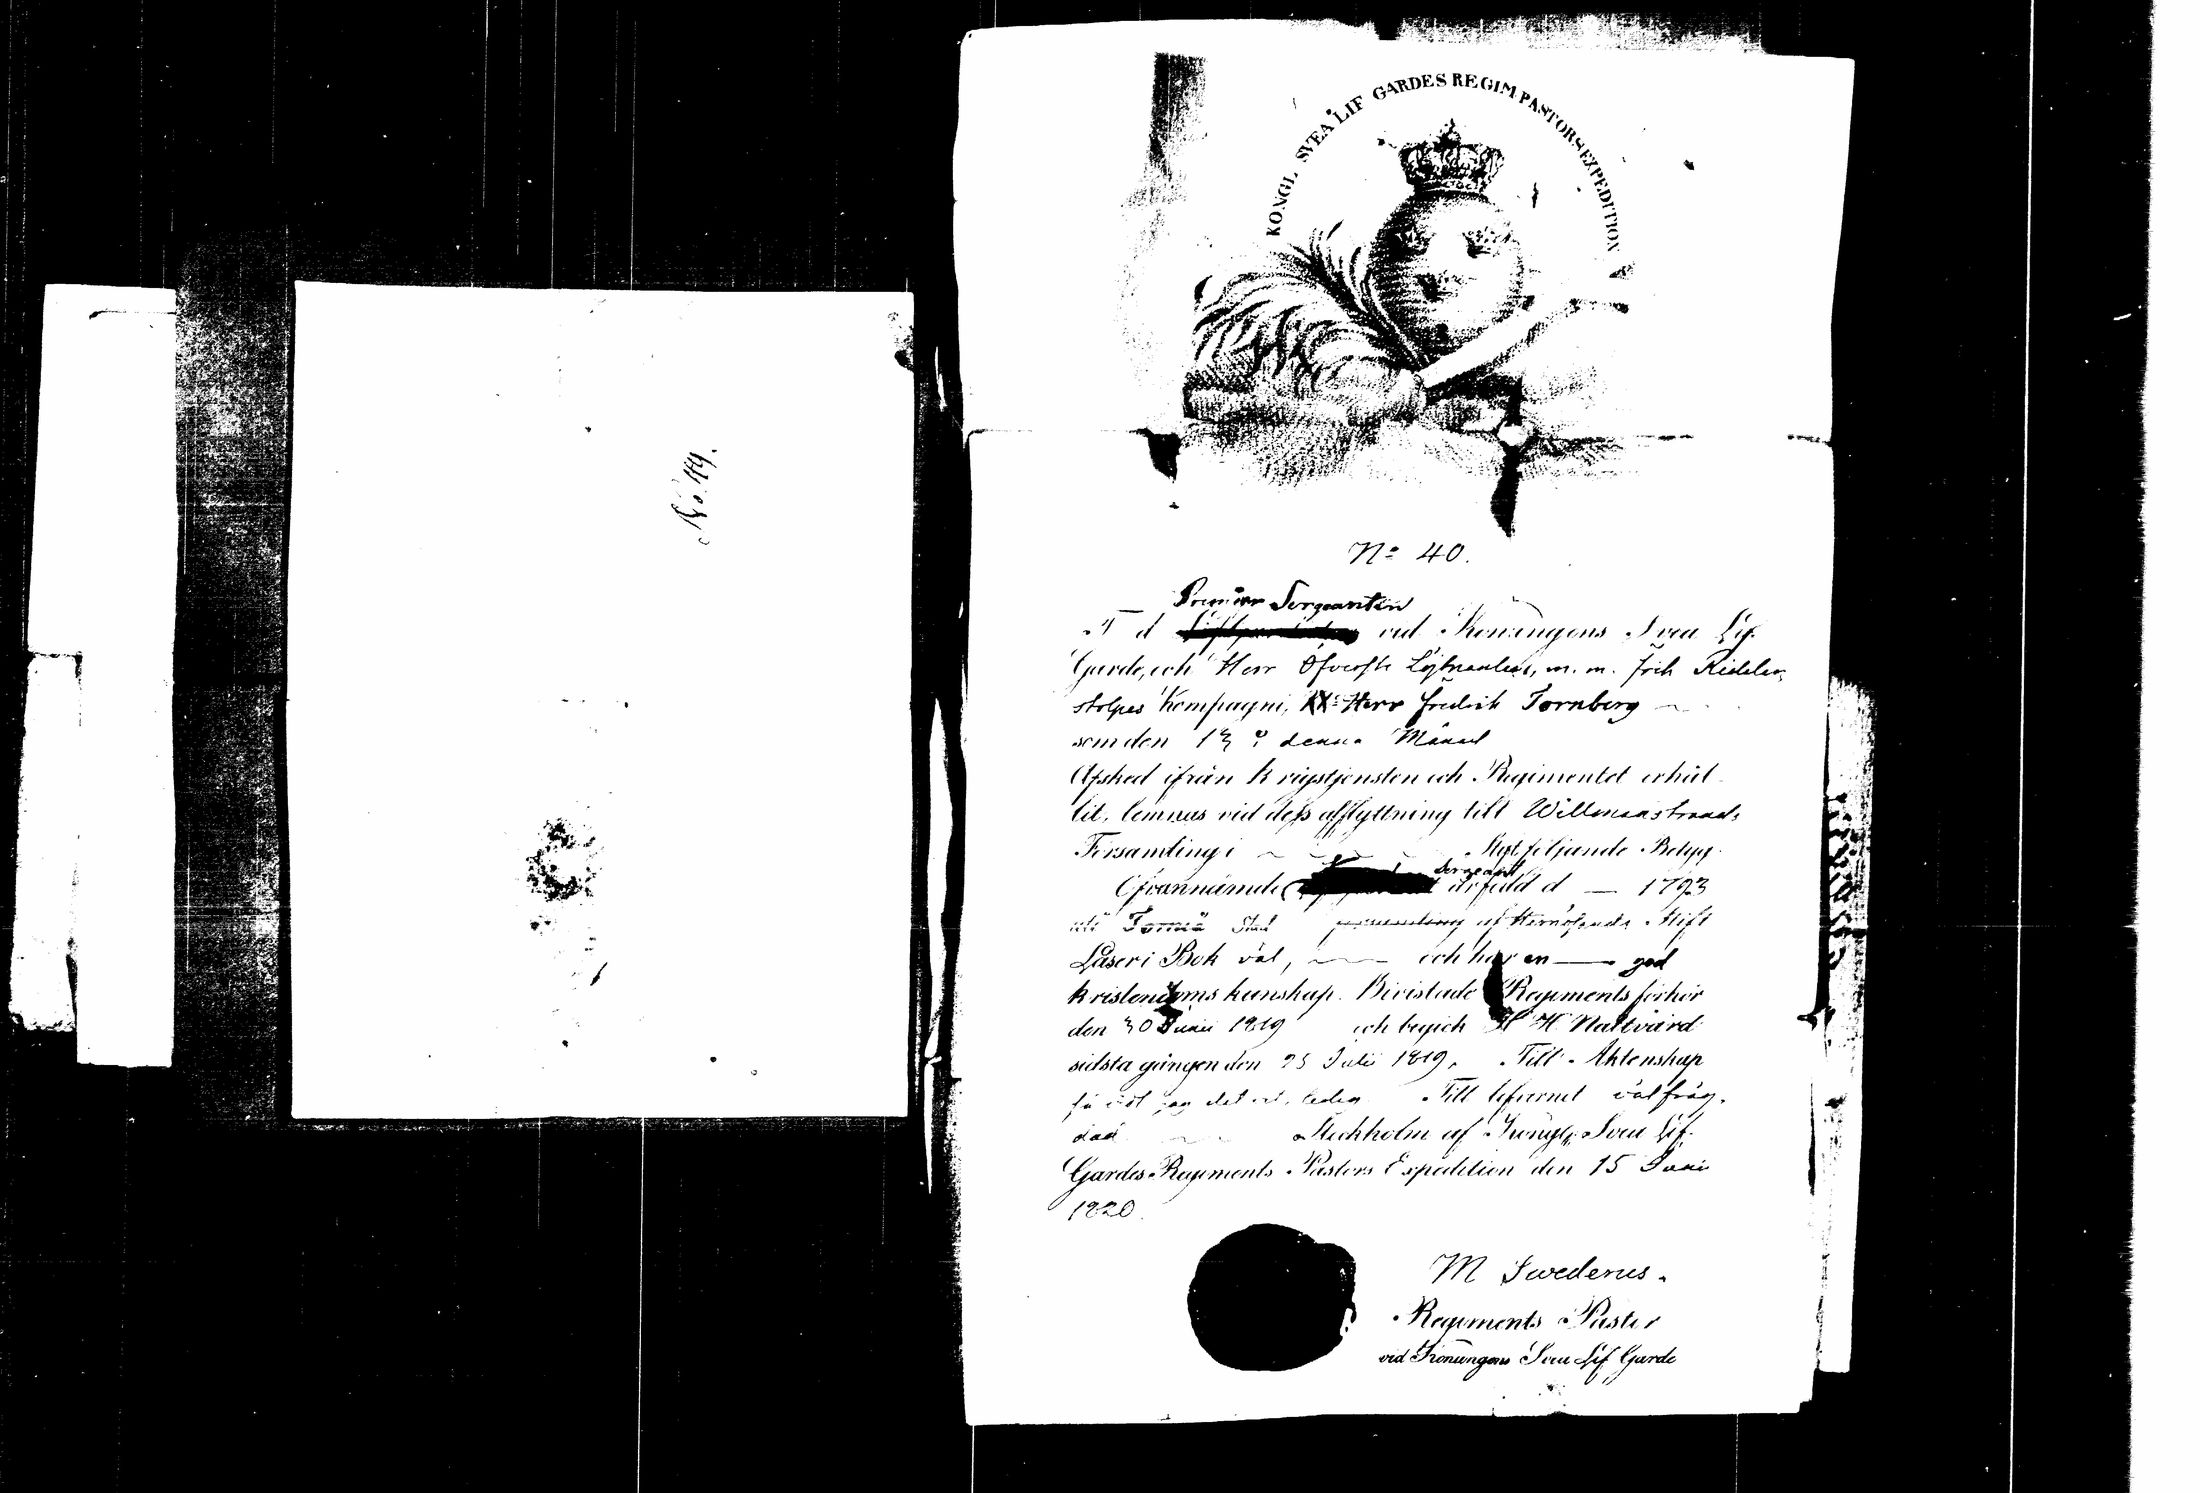 No 119.
KONGL SVEA LIF GARDES REGIM PASTORSEXPEDITION
No 40.
Premier Sergeanten
F d vid Konungens Svea Lif
Garde, och Herr Öfverste Löjtnanten, m. m. Frih Ridder
stolpes Kompagni, Herr Fredrik Tornberg
som den 13 denna Månad
Afsked ifrån Krigstjensten och Regimentet erhål
lit, lemnas vid dess afflyttning till Willmanstrands
Församling i följande Betyg
Ofvannämde Sergeant är född d — 1793
uti Torneå Stad församling af Hernösands Stift
Läser i Bok väl, och har en — god
kristendoms kunskap. Bivistade Regements förhör
den 30 Junii 1819 och begick H H Nattvard
sidsta gången den 25 Julii 1819. Till Äktenskap
så vidt jag vet ledig Till lefvernet välfräg.
dad Stockholm af Kongl. Svea Lif
Gardes Regiments Pastors Expedition den 15 Juni
1820.
M Swederus.
Regements Pastor
vid Konungens Svea Lif Garde